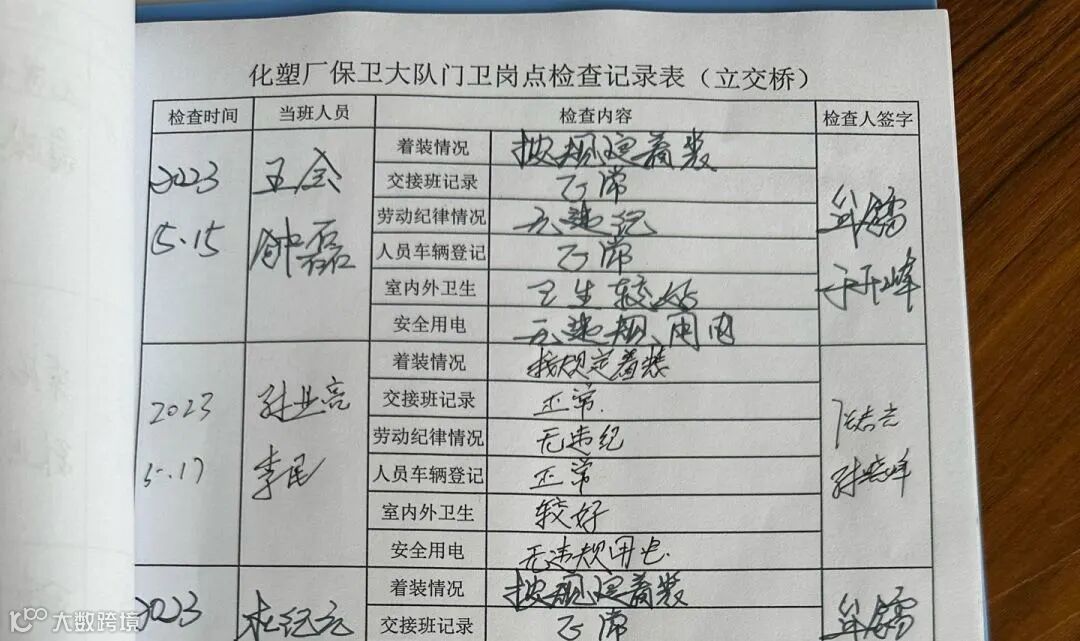 化塑厂保卫大队门卫岗点检查记录表（立交桥）
检查时间 当班人员 检查内容 检查人签字
2023
5.15
王会
钟磊
着装情况 按规定着装
交接班记录 正常
劳动纪律情况 无违纪
人员车辆登记 正常
室内外卫生 卫生较好
安全用电 无违规用电
于开峰
2023
5.17
孙业亮
李民
着装情况 按规定着装
交接班记录 正常.
劳动纪律情况 无违纪
人员车辆登记 正常
室内外卫生 较好
安全用电 无违规用电.
孙晓峰
2023
杜纪元
着装情况 按规定着装
交接班记录 正常
大数跨境